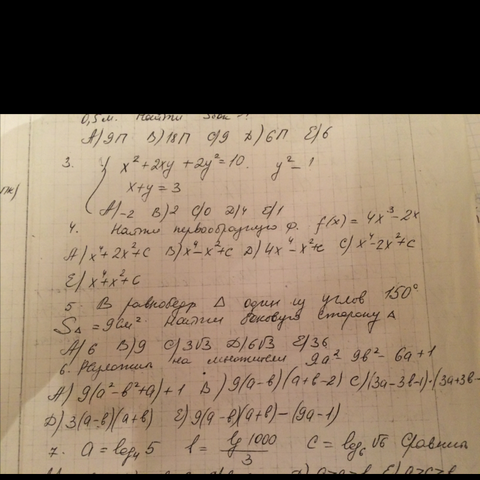 0,5 м. Найти
А) 9П В) 18П С) 9 Д) 6П Е) 6
3. { x²+2xy+2y²=10. y² – !
x+y=3
А) -2 В) 2 С) 0 Д) 4 Е) 1
4. Найти первообразную ф. f(x) = 4x³-2x
А) x⁴+2x²+C В) x⁴-x²+C Д) 4x⁴-x²+C С) x⁴-2x²+C
Е) x⁴+x²+C
5. В равнобедр Δ один из углов 150°
SΔ = 9см². Найти боковую сторону Δ
А) 6 В) 9 С) 3√3 Д) 6√3 Е) 36
6. Разложить на множители 9a² 9b² - 6a+1
А) 9(a²-b²+a)+1 В) 9(a-b)(a+b-2) С) (3a-3b-1)·(3a+3b-
Д) 3(a-b)(a+b) Е) 9(a-b)(a+b)-(9a-1)
7. a = log₄ 5 b = lg 1000 / 3 c = log₆ √6 Сравнить